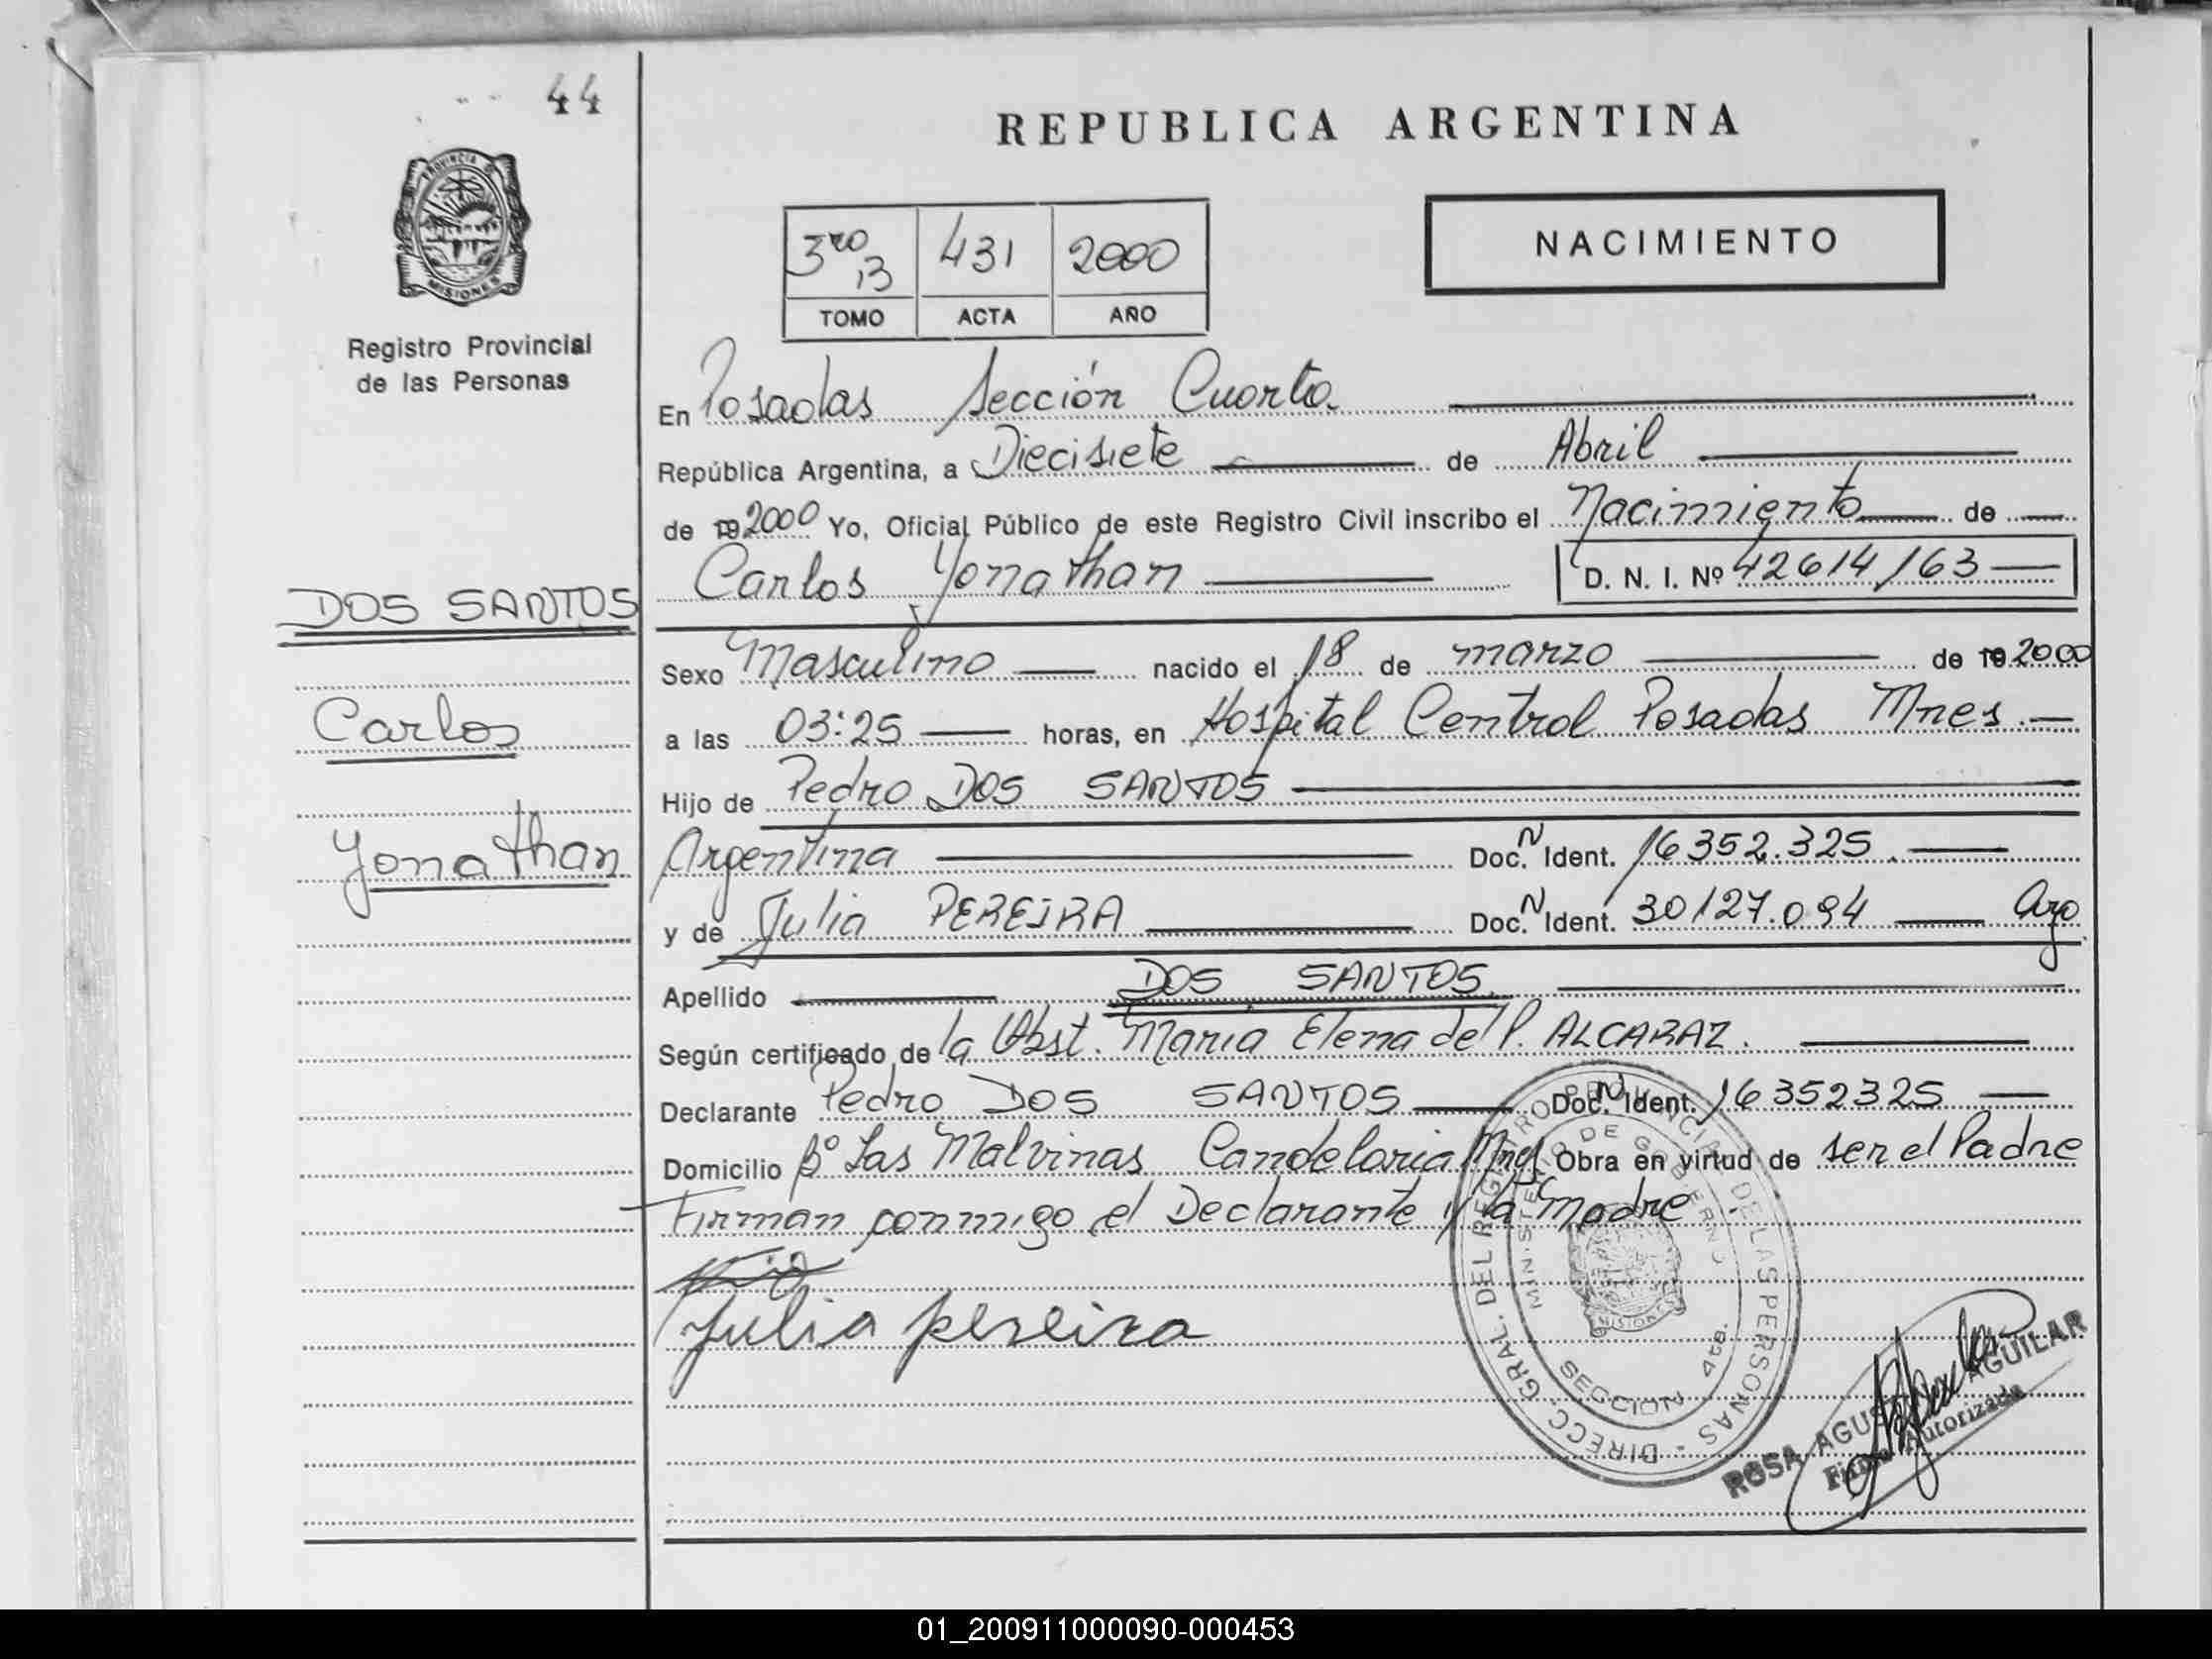 44
PROVINCIA DE
MISIONES
Registro Provincial
de las Personas
DOS SANTOS
Carlos
Yonathan
REPUBLICA ARGENTINA
3ro 13 431 2000
TOMO ACTA AÑO
NACIMIENTO
En Posadas Sección Cuarta
República Argentina, a Diecisiete de Abril
de 19 2000 Yo, Oficial Público de este Registro Civil inscribo el Nacimiento de
Carlos Yonathan D. N. I. Nº 42614163
Sexo Masculino nacido el 18 de marzo de 19 2000
a las 03:25 horas, en Hospital Central Posadas Mnes.
Hijo de Pedro DOS SANTOS
Argentina Doc. N Ident. 16352.325
y de Julia PEREIRA Doc. N Ident. 30127.094 Arg
Apellido DOS SANTOS
Según certificado de la Obst. María Elena del P. ALCARAZ.
Declarante Pedro DOS SANTOS Doc. N Ident. 16352325
Domicilio Bº Las Malvinas Candelaria Mnes Obra en virtud de ser el Padre
Firman conmigo el Declarante y la Madre
Julia pereira
DIRECC. GRAL. DEL REGISTRO PROVINCIAL DE LAS PERSONAS -
MINISTERIO DE GOBIERNO
MISIONES
SECCION 4ta.
ROSA AGUS AGUILAR
Firma Autorizada
01_200911000090-000453